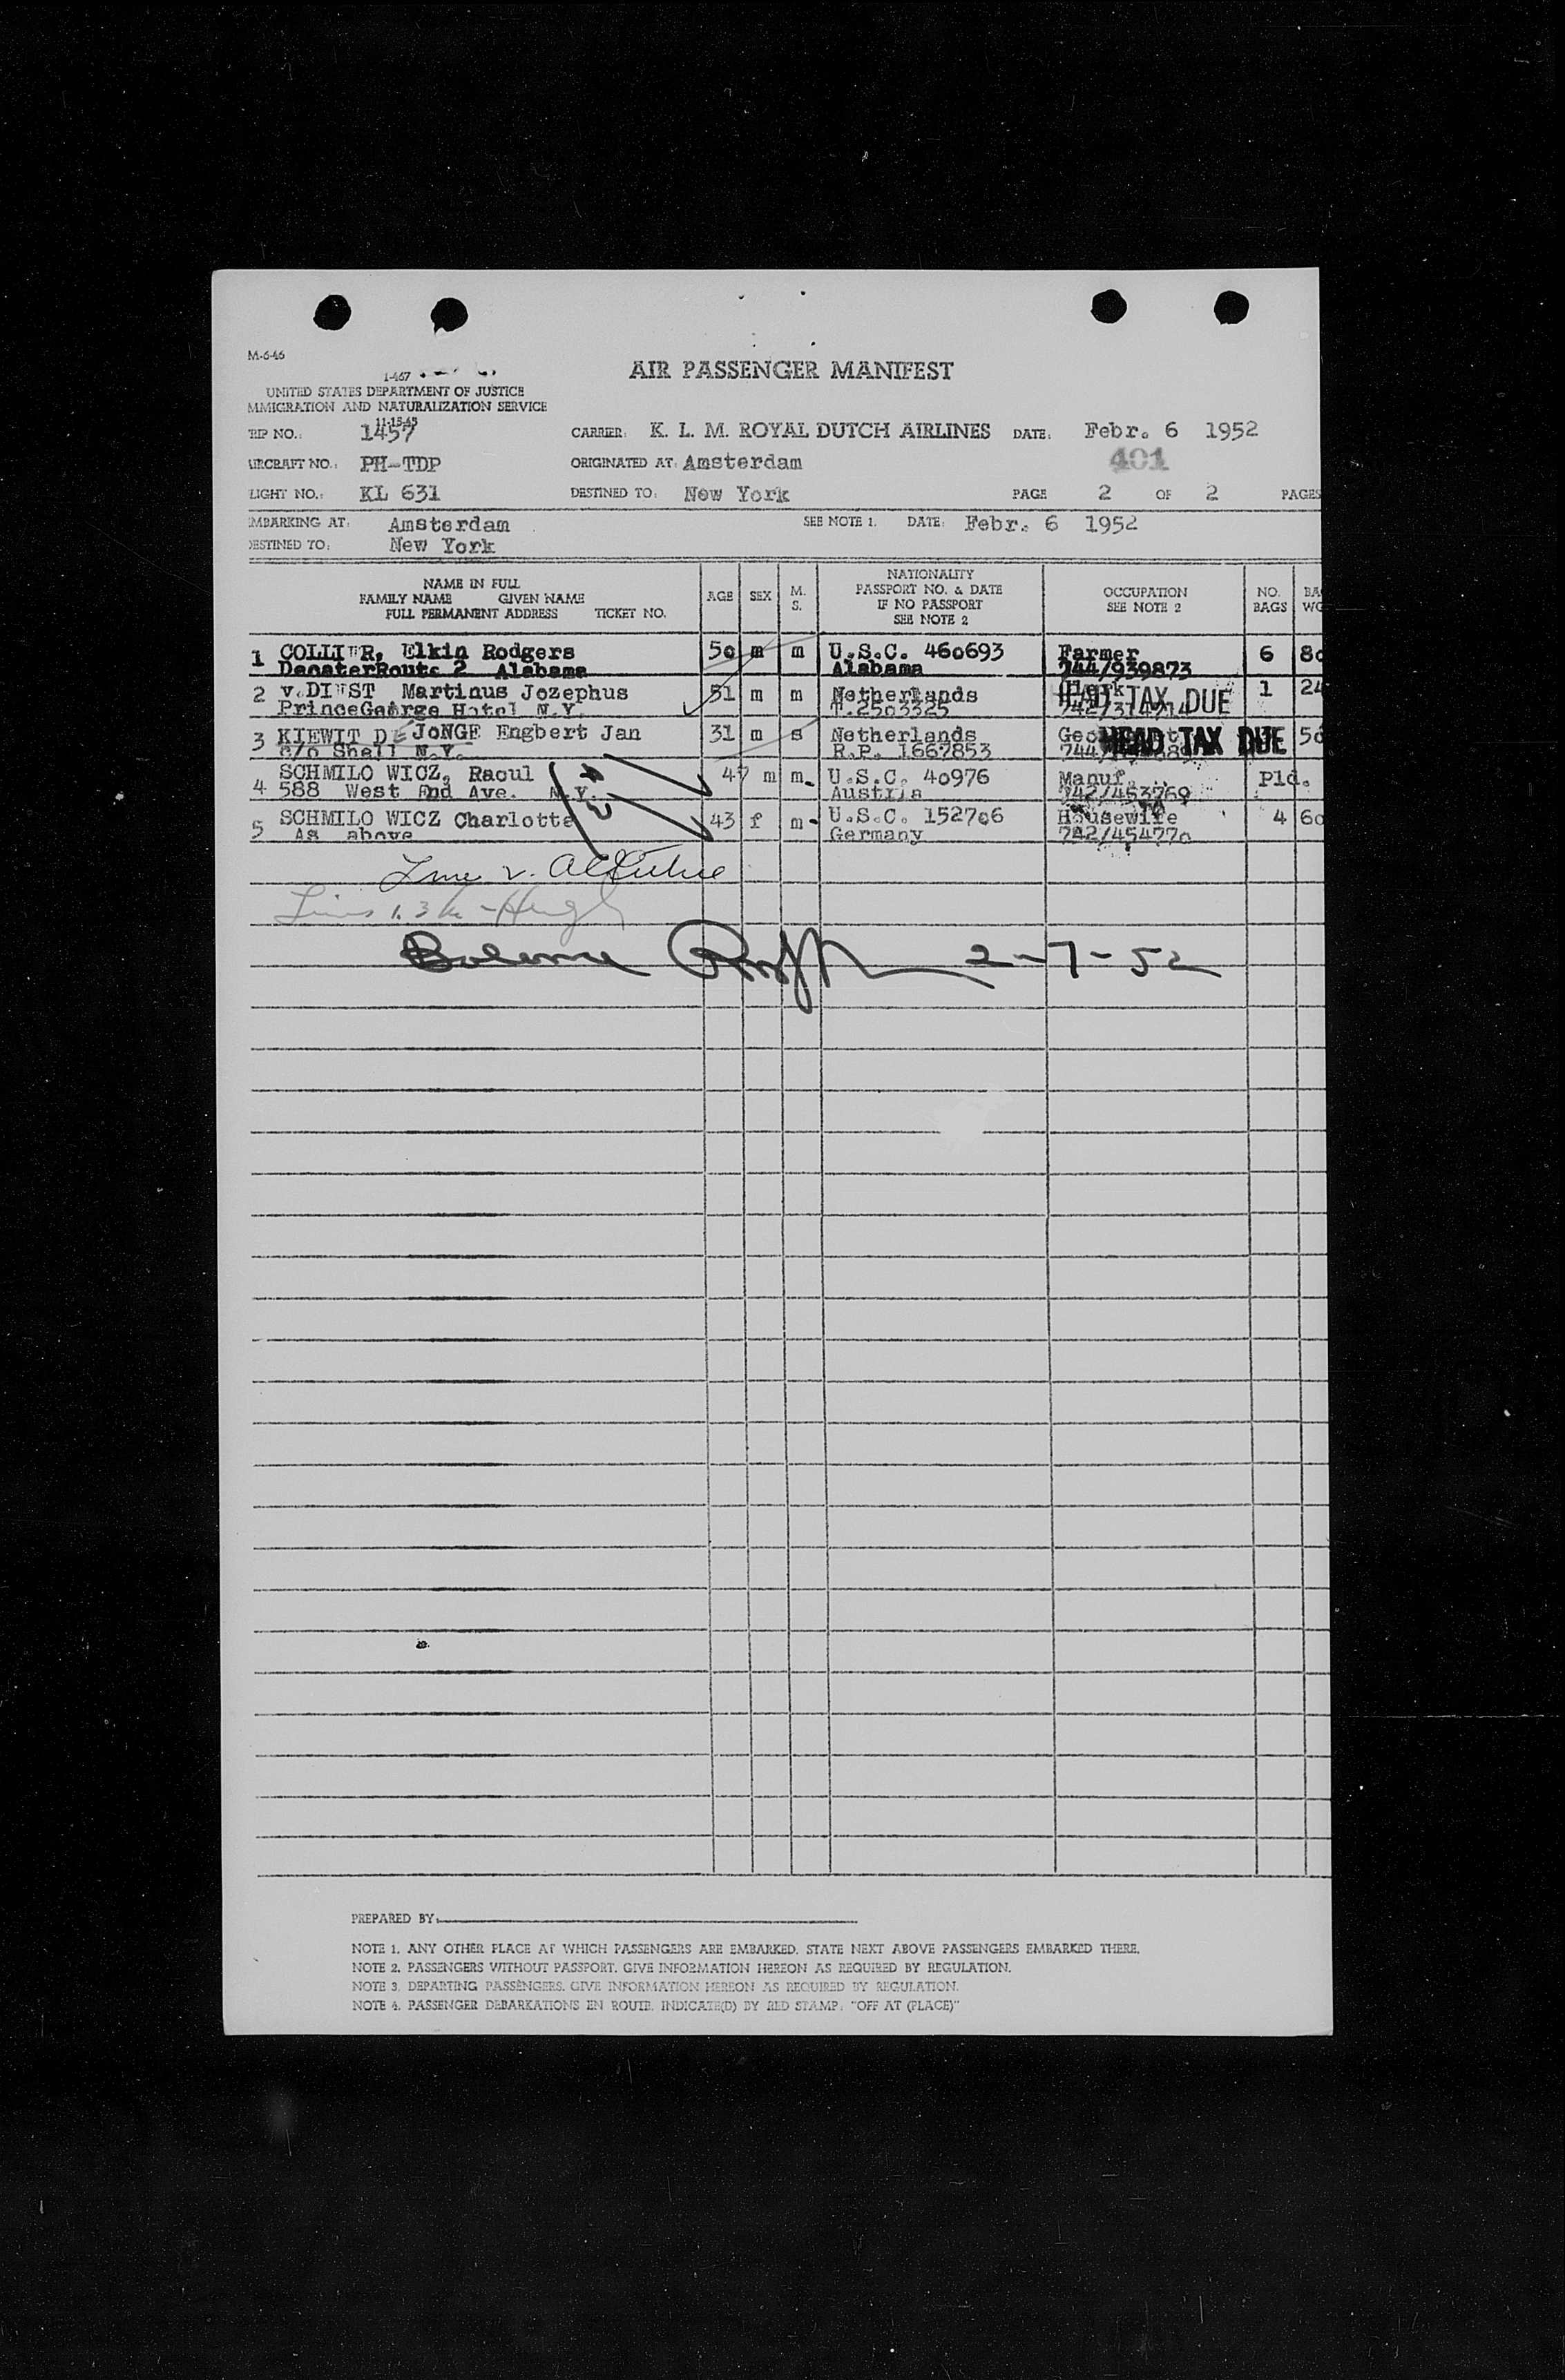 M-6-46
I-467
AIR PASSENGER MANIFEST
UNITED STATES DEPARTMENT OF JUSTICE
MMIGRATION AND NATURALIZATION SERVICE
11-15-45
RIP NO.: 1457 CARRIER: K. L. M. ROYAL DUTCH AIRLINES DATE: Febr. 6 1952
401
IRCRAFT NO.: PH-TDP ORIGINATED AT: Amsterdam
LIGHT NO.: KL 631 DESTINED TO: New York PAGE 2 OF 2 PAGES
MBARKING AT: Amsterdam SEE NOTE 1. DATE: Febr. 6 1952
ESTINED TO: New York
NAME IN FULL
FAMILY NAME GIVEN NAME
FULL PERMANENT ADDRESS TICKET NO.
AGE SEX M. S.
NATIONALITY
PASSPORT NO. & DATE
IF NO PASSPORT
SEE NOTE 2
OCCUPATION
SEE NOTE 2
NO. BAGS
BA
WG
1 COLLIER, Elkin Rodgers 50 m m U.S.C. 460693 Farmer 6 80
DecaterRoute 2 Alabama Alabama 244/939873
2 v.DIEST Martinus Jozephus 51 m m Netherlands Clerk 1 24
PrinceGeorge Hotel N.Y. T.2503325 HEAD TAX DUE
3 KIEWIT DE JONGE Engbert Jan 31 m s Netherlands HEAD TAX DUE 50
c/o Shell N.Y. R.P. 1667853
4 SCHMILO WICZ, Raoul 47 m m U.S.C. 40976 Manuf. Pld.
588 West End Ave. N.Y. Austria 742/453769
5 SCHMILO WICZ Charlotte 43 f m U.S.C. 152706 Housewife 4 60
As above Germany 742/454770
Lines 1. 3
2-7-52
PREPARED BY:
NOTE 1. ANY OTHER PLACE AT WHICH PASSENGERS ARE EMBARKED. STATE NEXT ABOVE PASSENGERS EMBARKED THERE.
NOTE 2. PASSENGERS WITHOUT PASSPORT. GIVE INFORMATION HEREON AS REQUIRED BY REGULATION.
NOTE 3. DEPARTING PASSENGERS. GIVE INFORMATION HEREON AS REQUIRED BY REGULATION.
NOTE 4. PASSENGER DEBARKATIONS EN ROUTE. INDICATE(D) BY RED STAMP: "OFF AT (PLACE)"